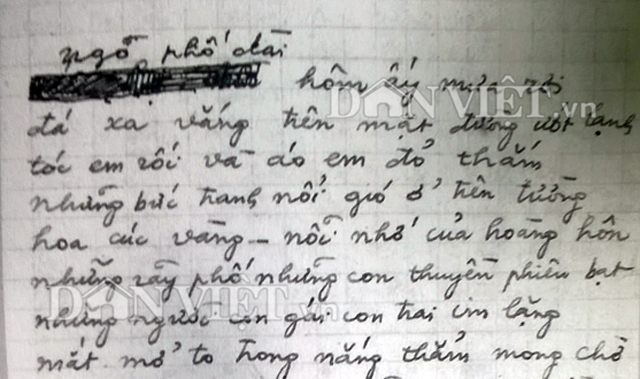 ngõ phố dài
hôm ấy mưa rơi
đá xa vắng trên mặt đường ướt lạnh
tóc em rối và áo em đỏ thắm
những bức tranh nổi gió ở trên tường
hoa cúc vàng - nỗi nhớ của hoàng hôn
những dãy phố những con thuyền phiêu bạt
những người con gái con trai im lặng
mắt mở to trong nắng thẳm mong chờ
DÂN VIỆT.vn
DÂN VIỆT